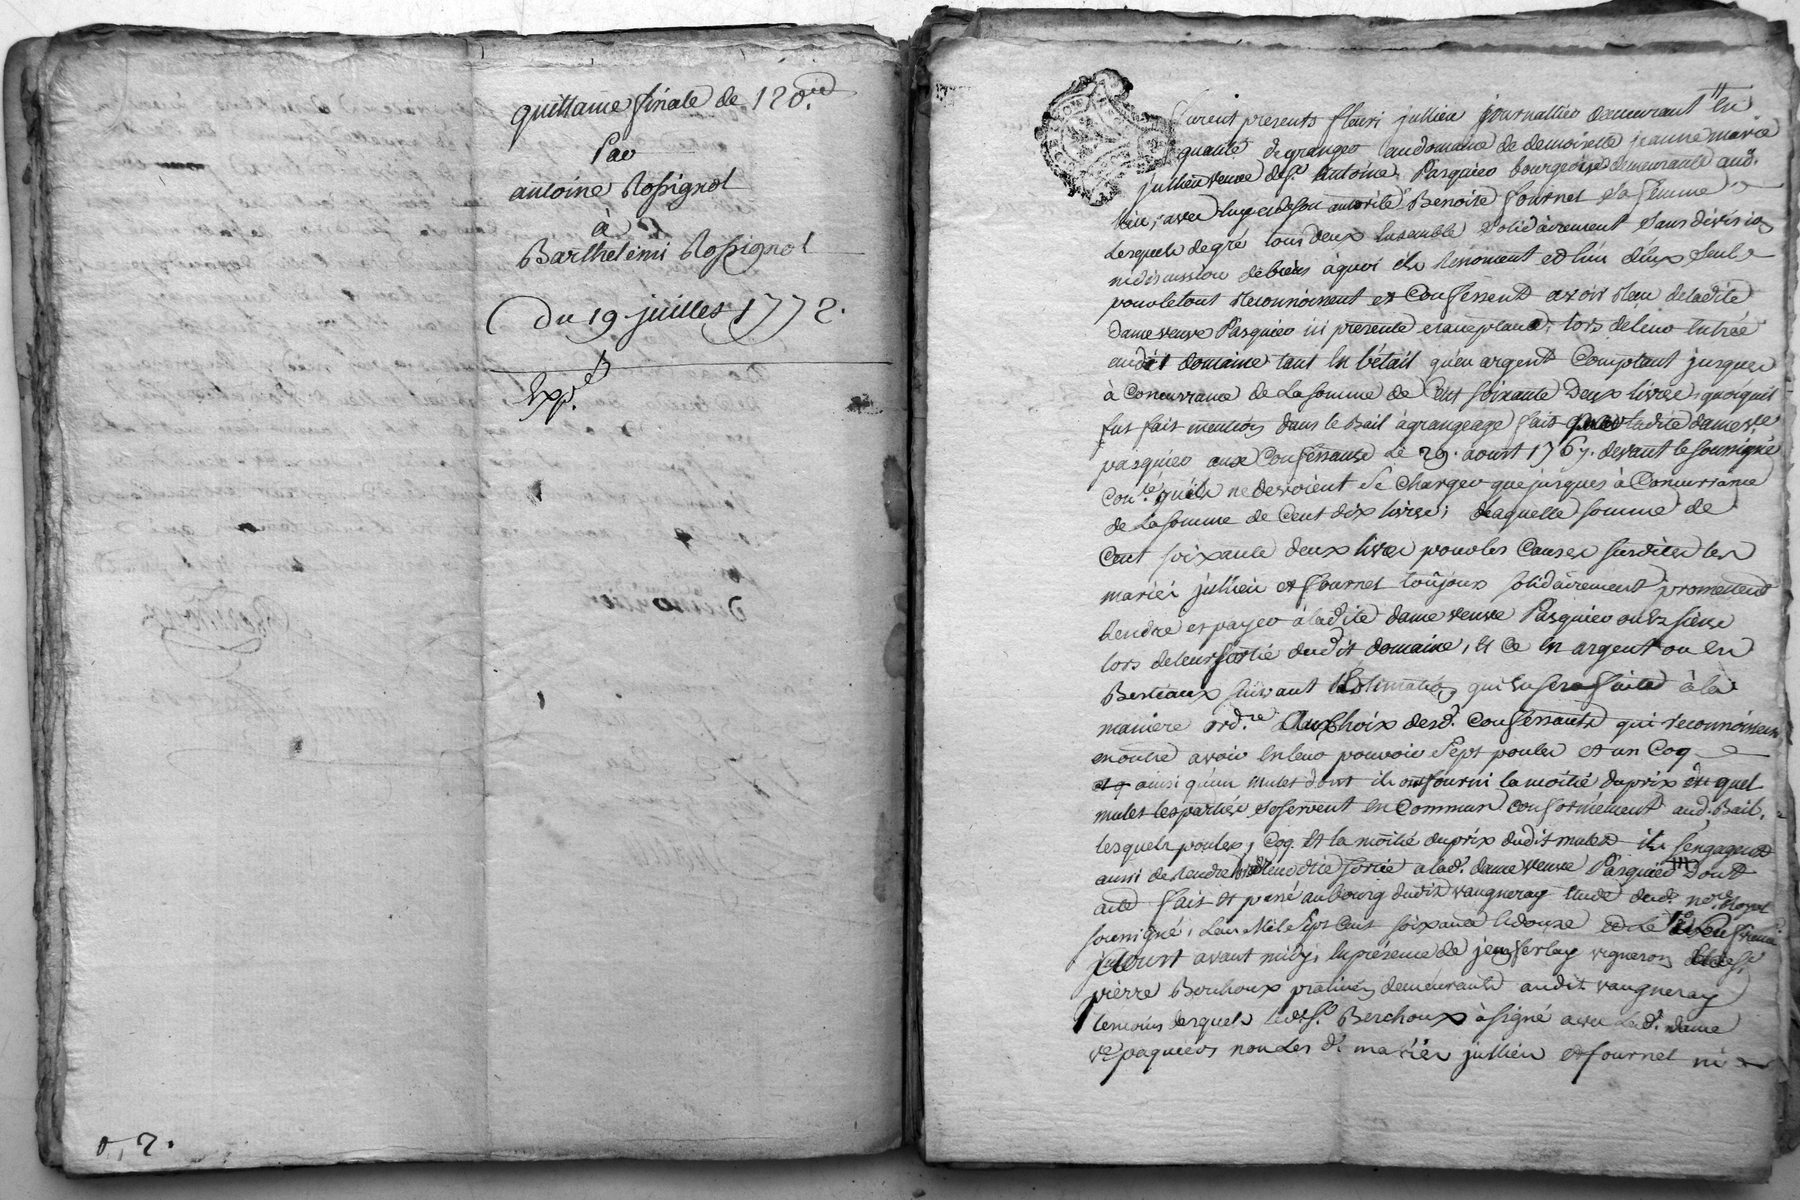 quittance finale de 120.
Par
antoine Rossignol
à
Barthelemi Rossignol
Du 19 juillet 1772.
Exp.é
0,2.
furent presents fleuri jullien journallier demeurant en
qualité de granger au domaine de demoiselle jeanne marie
jullien veuve de sr. Antoine Pasquier bourgeoise demeurante aud.
lieu, avec luy et de son autorité Benoite fournel sa femme
Lesquels de gré tous deux ensemble solidairement sans division
ni discussion de biens à quoi ils renoncent et l'un d'eux seul
pour le tout reconnoissent et confessent avoir reçu de ladite
dame veuve Pasquier ici presente et acceptante, lors de leur entrée
audit domaine tant en bétail qu'en argent comptant jusques
à concurrance de la somme de cent soixante deux livres, quoiquil
fut fait mention dans le Bail à grangeage fait par ladite dame ve.
pasquier aux confessants le 29. aoust 1767. devant le soussigné
con.re quils ne devoient se charger que jusques à concurrance
de la somme de cent dix livres; delaquelle somme de
cent soixante deux livres pour les causes susdites les
mariés jullien et fournel toujours solidairement promettent
rendre et payer à ladite dame veuve Pasquier ou es siens
lors de leur sortie dudit domaine, et ce en argent ou en
Bestiaux suivant l'Estimation qui en sera faite à la
maniere ord.re au choix desd. confessants qui reconnoissent
en outre avoir en leur pouvoir sept poules et un coq
ainsi qu'un mulet dont ils ont fourni la moitié du prix du quel
mulet les parties se servent en commun conformément aud. Bail,
lesquels poules, coq et la moitié du prix dudit mulet ils s'engagent
aussi de rendre lors de leur dite sortie a lad. dame veuve Pasquier Dont
acte fait et passé au bourg dudit vaugneray etude dud. nore. Royal
soussigné, L'an Mile sept cent soixante et douze et le
avant midy, en présence de jean ferlay vigneron et de sr.
pierre Berchoux praticien demeurants audit vaugneray
temoins desquels ledit sr. Berchoux à signé avec lad. dame
ve. paquier non les d. mariés jullien et fournel ni